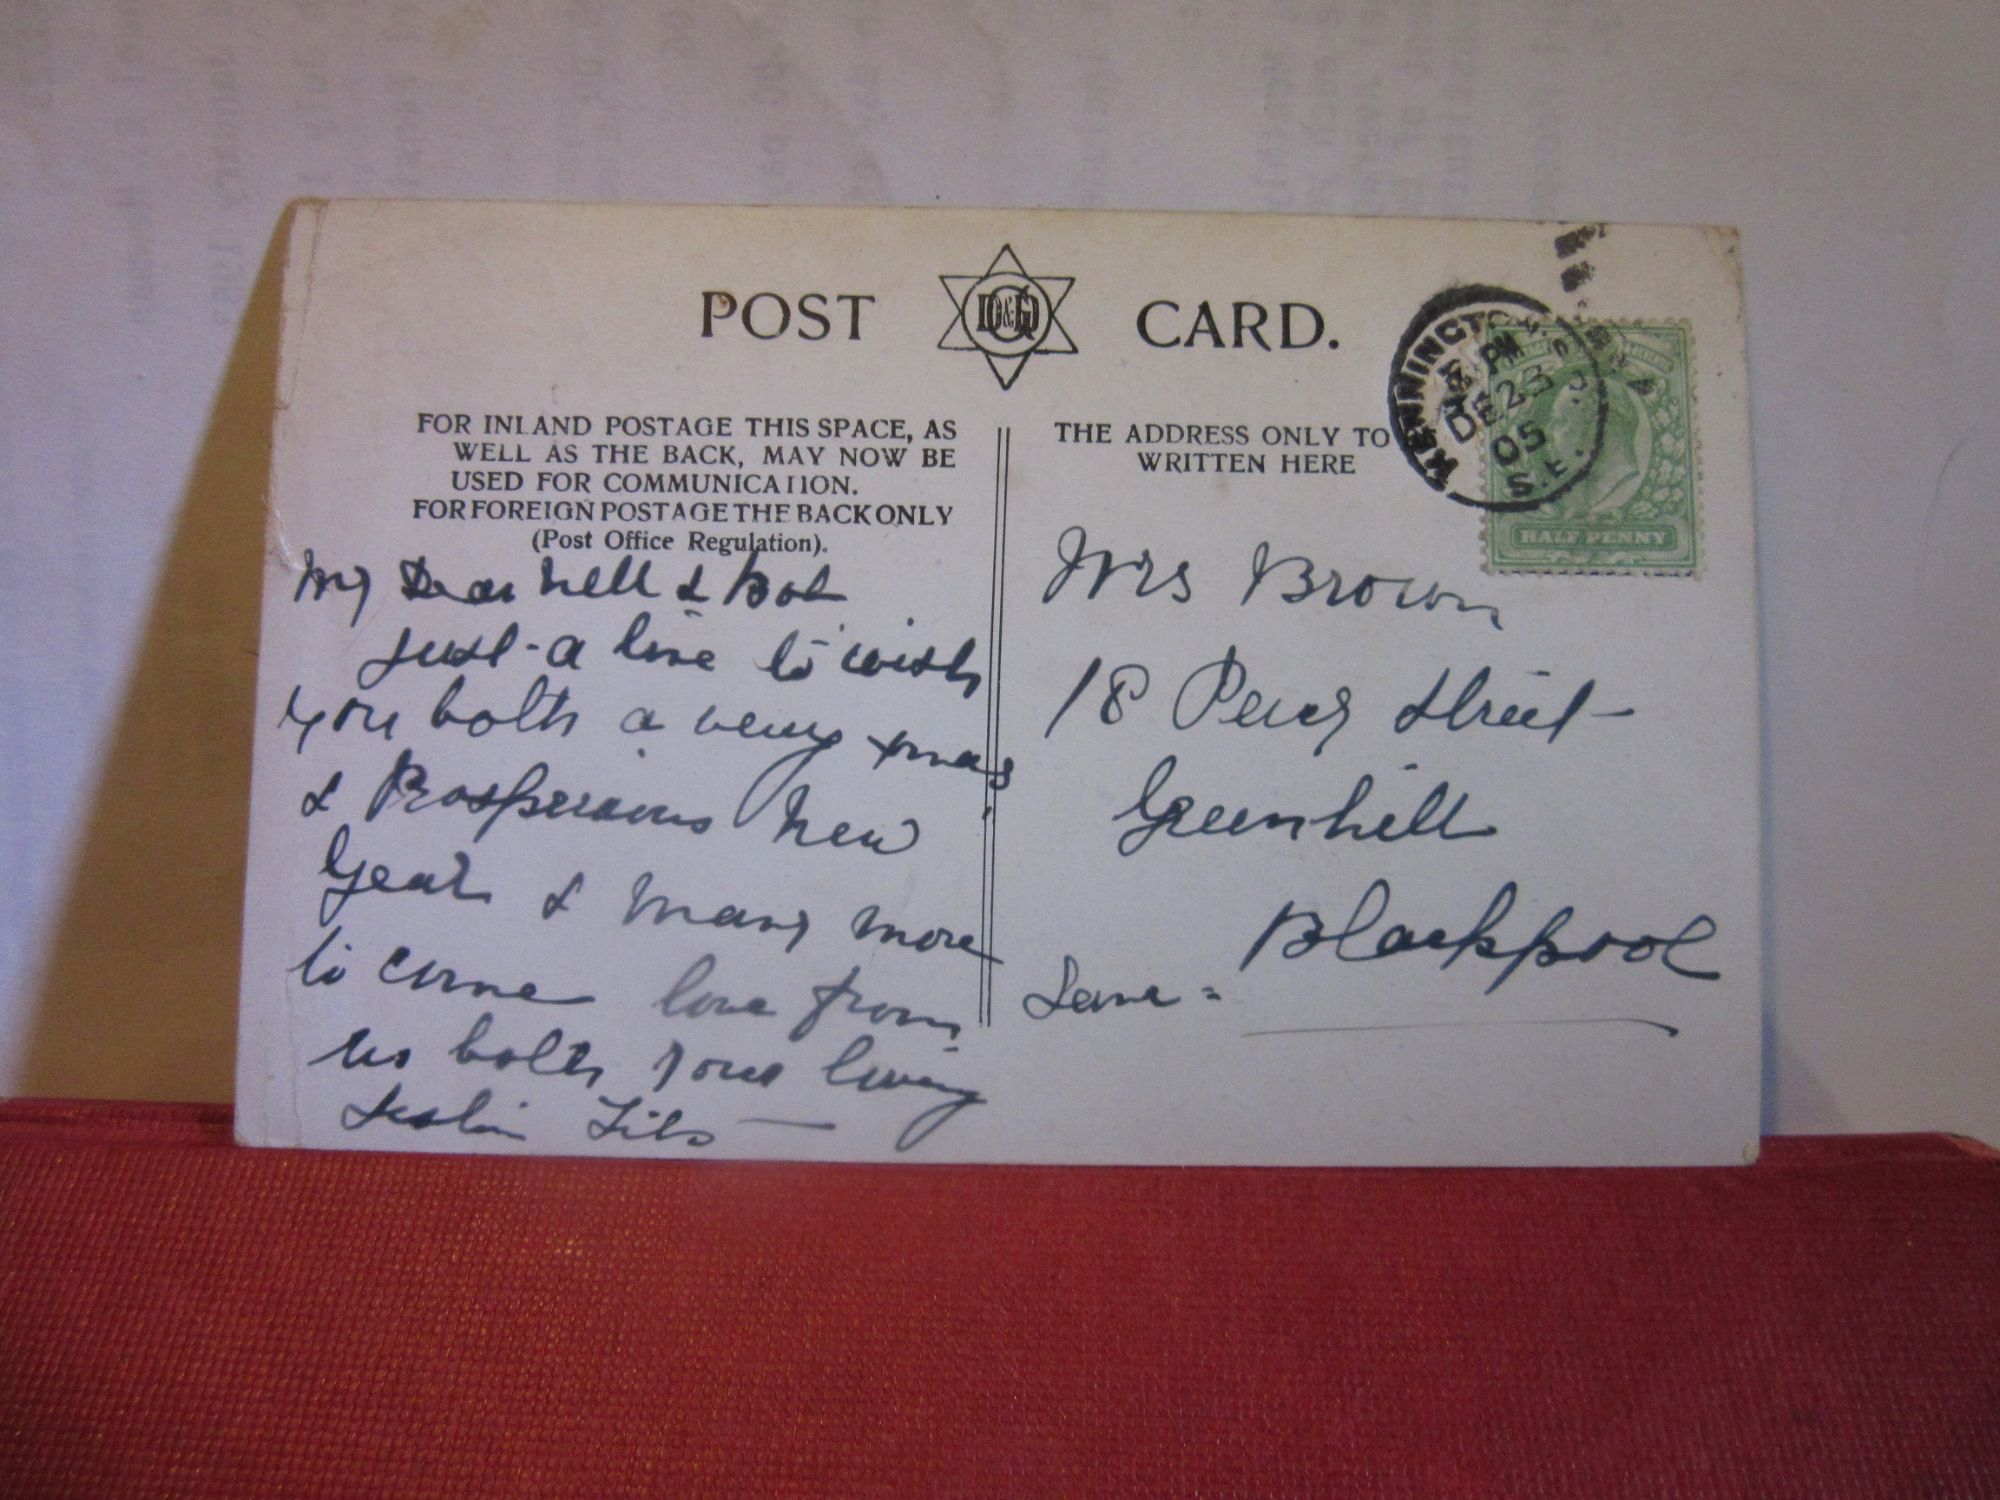 POST D&G CARD.
FOR INLAND POSTAGE THIS SPACE, AS
WELL AS THE BACK, MAY NOW BE
USED FOR COMMUNICATION.
FOR FOREIGN POSTAGE THE BACK ONLY
(Post Office Regulation).
My Dear Nell & Bob
just a line to wish
you both a very xmas
& Prosperious New
Year & Many more
to come love from
us both your loving
THE ADDRESS ONLY TO
WRITTEN HERE
Mrs Brown
18 Percy Street
Greenhill
Blackpool
KENNINGTON
PM
DE 23
05
S.E.
HALF PENNY